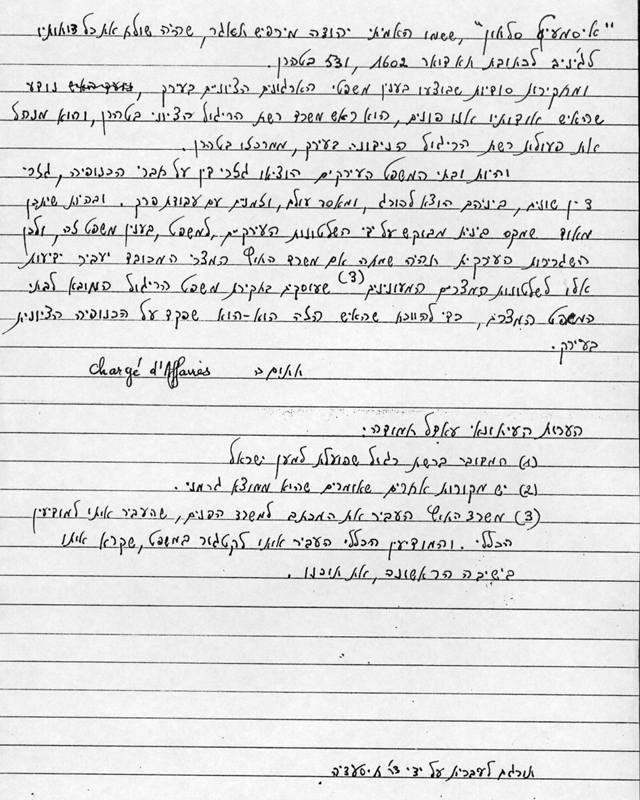 "איסמעיל סלאון", ששמו האמיתי יהודה מירפיש תאגר, שהיה שולח את כל דוחותיו
לג'יניב לכתובת תא דואר 2508, 53 בטהרן.
ומחקירות סודיות שבוצעו בענין משפטי הארגונים הציוניים בעירק, נודע
שהאיש אודותיו אנו פונים, הוא ראש משרד רשת הריגול הציוני בטהרן, והוא מנהל
את פעולות רשת הריגול הציונית בעירק, ממרכזו בטהרן.
והיות ובתי המשפט העירקים הוציאו גזרי דין על חברי הכנופיה, גזרי
דין שונים, ביניהם הוצא להורג, ומאסר עולם, וזמנים עם עבודת פרך. ובהיות שיתכן
מאוד שמקס בינית מבוקש על ידי השלטונות העירקיים למשפט, בענין משפט זה, ולכן
השגרירות העירקית תהיה שמחה אם משרד החוץ המצרי המכובד יעביר ידיעות
אלו לשלטונות המצרים המעונינים (3) שעוסקים בחקירת משפט הריגול המובא לבתי
המשפט המצרים, כדי להווכח שהאיש הלזה הוא-הוא שפקד על הכנופיה הציונית
בעירק.
חתום ה Chargé d'Affaires
הערות העיתונאי עאדל חמודה:
(1) המדובר ברשת ריגול שפועלת למען ישראל
(2) יש מקורות אחרים שאומרים שהוא ממוצא גרמני.
(3) משרד החוץ העביר את המכתב למשרד הפנים, שהעביר אותו למודיעין
הכללי. והמודיעין הכללי העביר אותו לקטגור במשפט, שקרא אותו
בישיבה הראשונה, את תוכנו.
תורגם לעברית על ידי